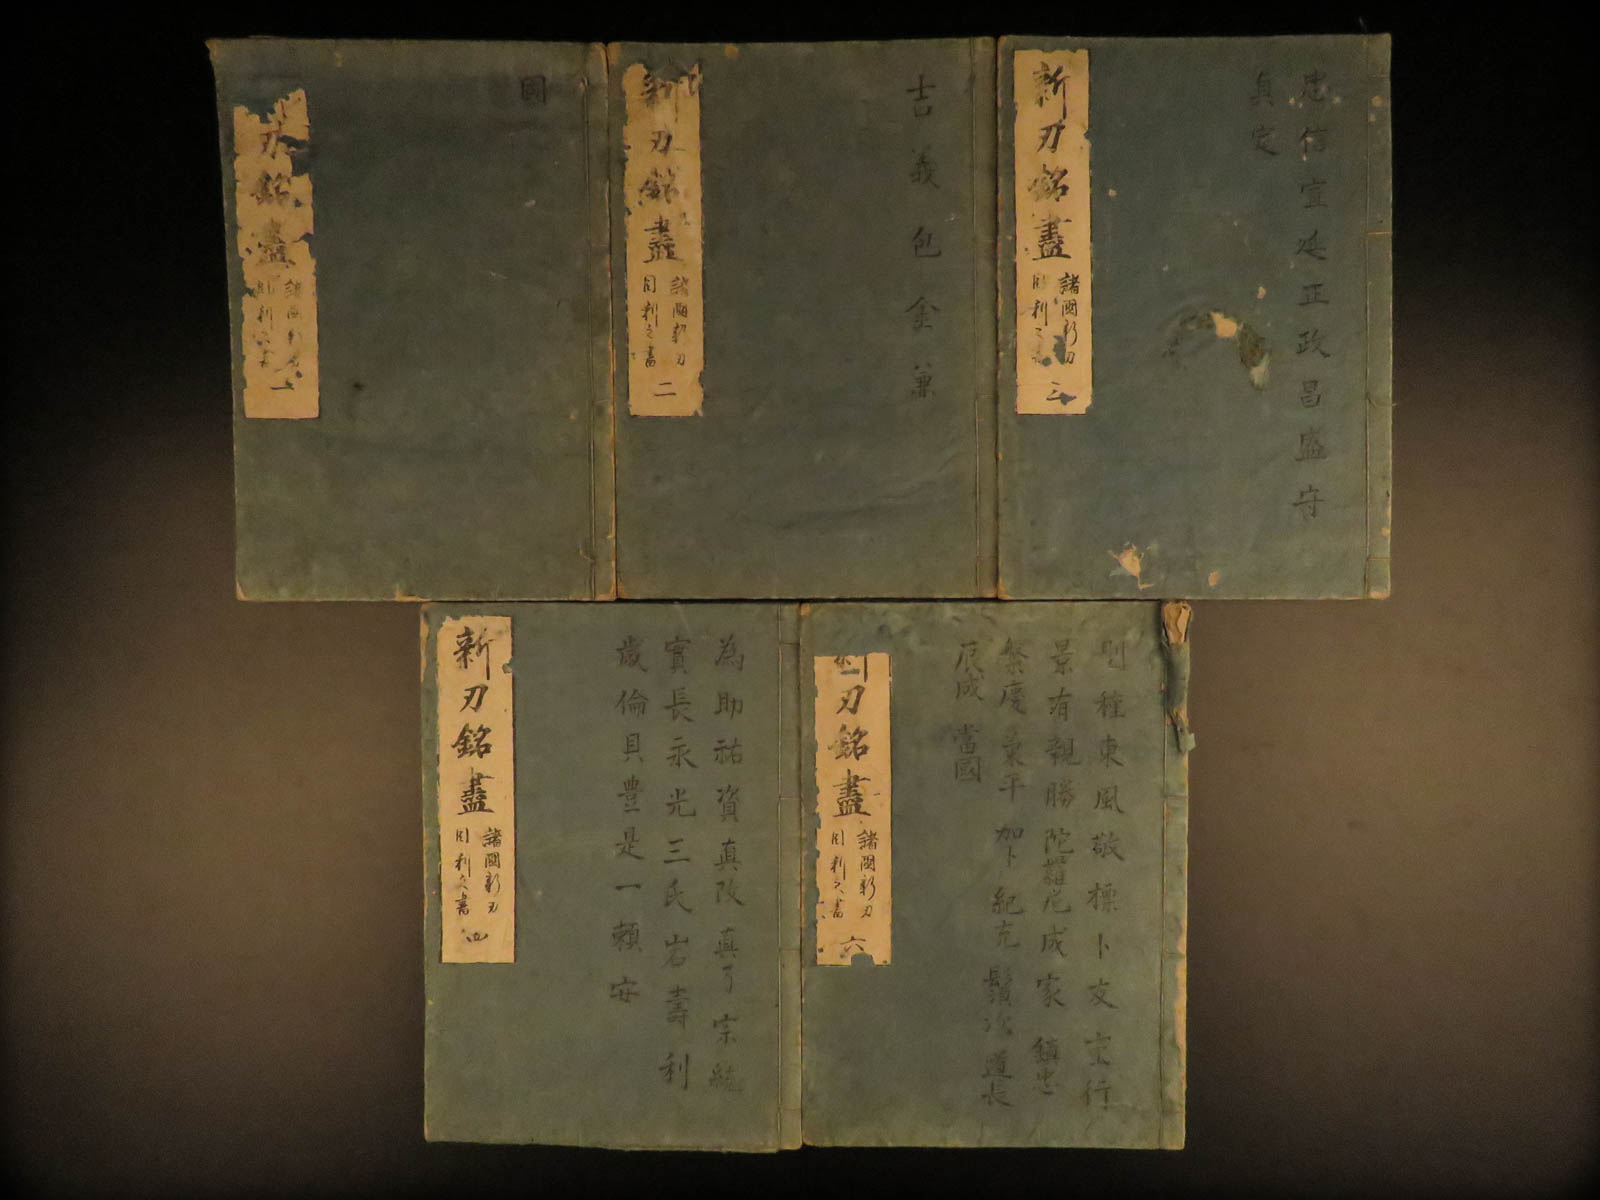 國
刃銘盡
諸國新刃
目利之書
一
吉義包金兼
新刃銘盡
諸國新刃
目利之書
二
忠信宣延正政昌盛守
貞定
新刃銘盡
諸國新刃
目利之
三
為助祐資真改真了宗統
實長永光三氏岩壽利
歲倫貝豊是一賴安
新刃銘盡
諸國新刃
目利之書
四
則種東風敬標卜友宝行
景有親勝陀羅尼成家鎮忠
繁慶兼平加卜紀充鬚次道長
辰成當國
新刃銘盡
諸國新刃
目利之書
六